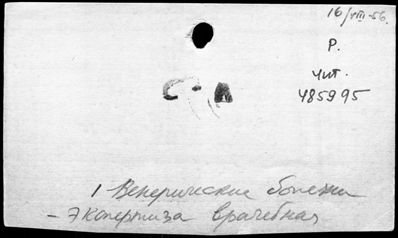 16/VIII-56.
Р.
Чит.
485995
1 Венерические болезни
- Экспертиза врачебная